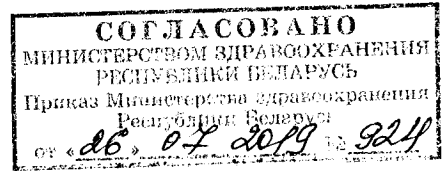 СОГЛАСОВАНО
МИНИСТЕРСТВОМ ЗДРАВООХРАНЕНИЯ
РЕСПУБЛИКИ БЕЛАРУСЬ
Приказ Министерства здравоохранения
Республики Беларусь
от «26» 07 2019 № 924